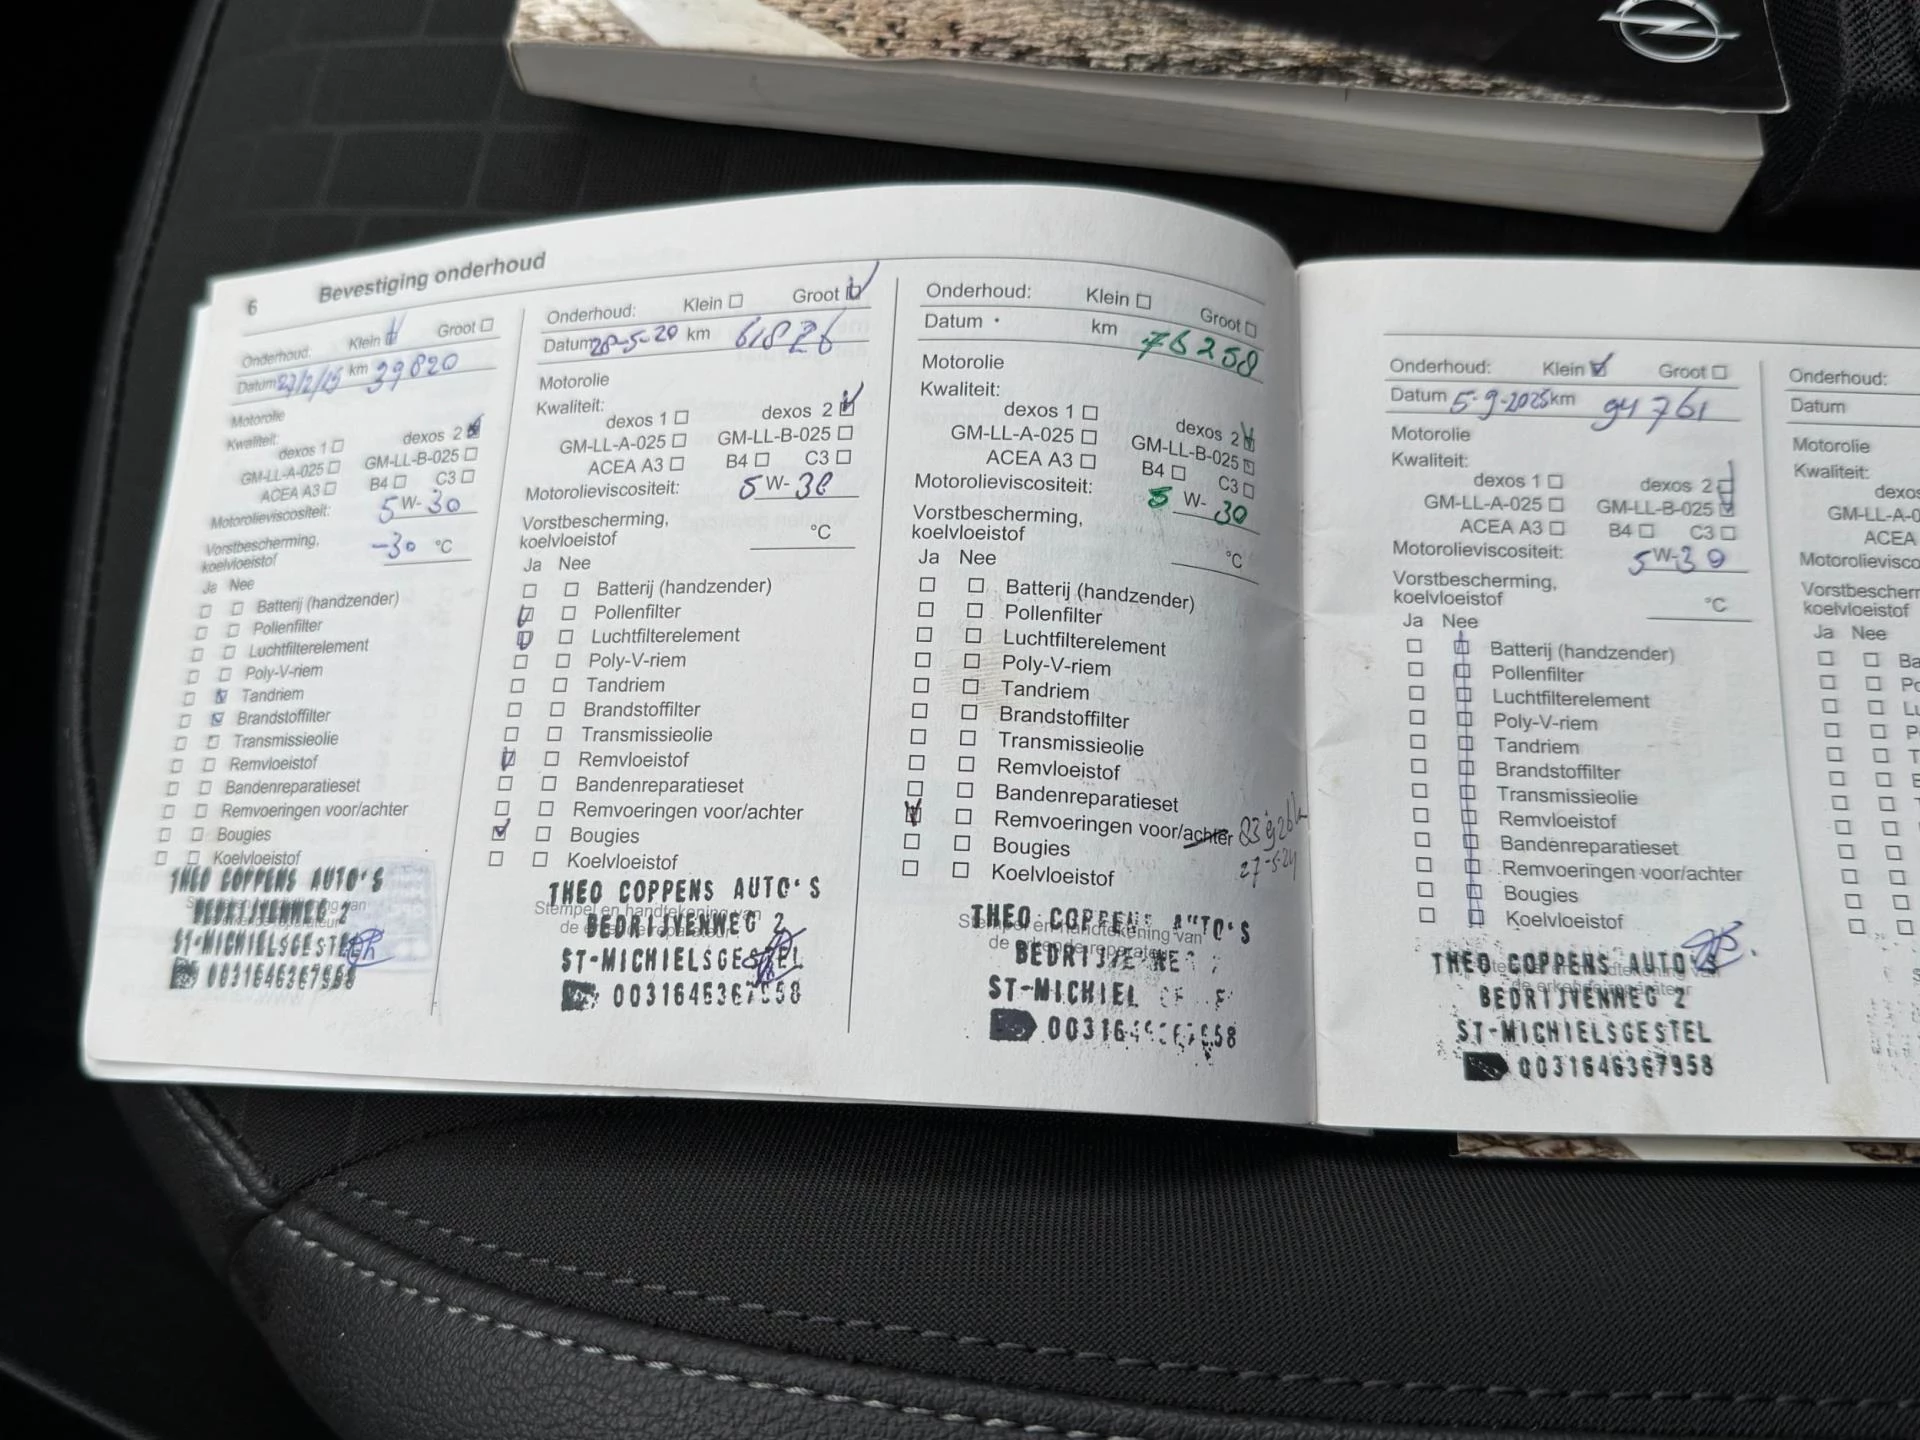 6 Bevestiging onderhoud
Onderhoud: Klein Groot
Datum 27/2/15 km 39820
Motorolie
Kwaliteit:
dexos 1 dexos 2
GM-LL-A-025 GM-LL-B-025
ACEA A3 B4 C3
Motorolieviscositeit: 5 W- 30
Vorstbescherming,
koelvloeistof -30 °C
Ja Nee
Batterij (handzender)
Pollenfilter
Luchtfilterelement
Poly-V-riem
Tandriem
Brandstoffilter
Transmissieolie
Remvloeistof
Bandenreparatieset
Remvoeringen voor/achter
Bougies
Koelvloeistof
THEO COPPENS AUTO'S
BEDRIJVENWEG 2
ST-MICHIELSGESTEL
0031646367958
Onderhoud: Klein Groot
Datum 28-5-20 km 61826
Motorolie
Kwaliteit:
dexos 1 dexos 2
GM-LL-A-025 GM-LL-B-025
ACEA A3 B4 C3
Motorolieviscositeit: 5 W- 30
Vorstbescherming,
koelvloeistof °C
Ja Nee
Batterij (handzender)
Pollenfilter
Luchtfilterelement
Poly-V-riem
Tandriem
Brandstoffilter
Transmissieolie
Remvloeistof
Bandenreparatieset
Remvoeringen voor/achter
Bougies
Koelvloeistof
THEO COPPENS AUTO'S
Stempel en handtekening van
BEDRIJVENWEG 2
de erkende reparateur
ST-MICHIELSGESTEL
0031646367958
Onderhoud: Klein Groot
Datum km 76258
Motorolie
Kwaliteit:
dexos 1 dexos 2
GM-LL-A-025 GM-LL-B-025
ACEA A3 B4 C3
Motorolieviscositeit: 5 W- 30
Vorstbescherming,
koelvloeistof °C
Ja Nee
Batterij (handzender)
Pollenfilter
Luchtfilterelement
Poly-V-riem
Tandriem
Brandstoffilter
Transmissieolie
Remvloeistof
Bandenreparatieset
Remvoeringen voor/achter
Bougies 27-5-24
Koelvloeistof
THEO COPPENS AUTO'S
Stempel en handtekening van
de erkende reparateur
ST-MICHIEL
Onderhoud: Klein Groot
Datum 5-9-2025 km 94761
Motorolie
Kwaliteit:
dexos 1 dexos 2
GM-LL-A-025 GM-LL-B-025
ACEA A3 B4 C3
Motorolieviscositeit: 5 W- 30
Vorstbescherming,
koelvloeistof °C
Ja Nee
Batterij (handzender)
Pollenfilter
Luchtfilterelement
Poly-V-riem
Tandriem
Brandstoffilter
Transmissieolie
Remvloeistof
Bandenreparatieset
Remvoeringen voor/achter
Bougies
Koelvloeistof
THEO COPPENS AUTO'S
BEDRIJVENWEG 2
ST-MICHIELSGESTEL
0031646367958
Onderhoud:
Datum
Motorolie
Kwaliteit:
dexos
GM-LL-A-0
ACEA
Motorolievisco
Vorstbescherm
koelvloeistof
Ja Nee
Ba
Po
Lu